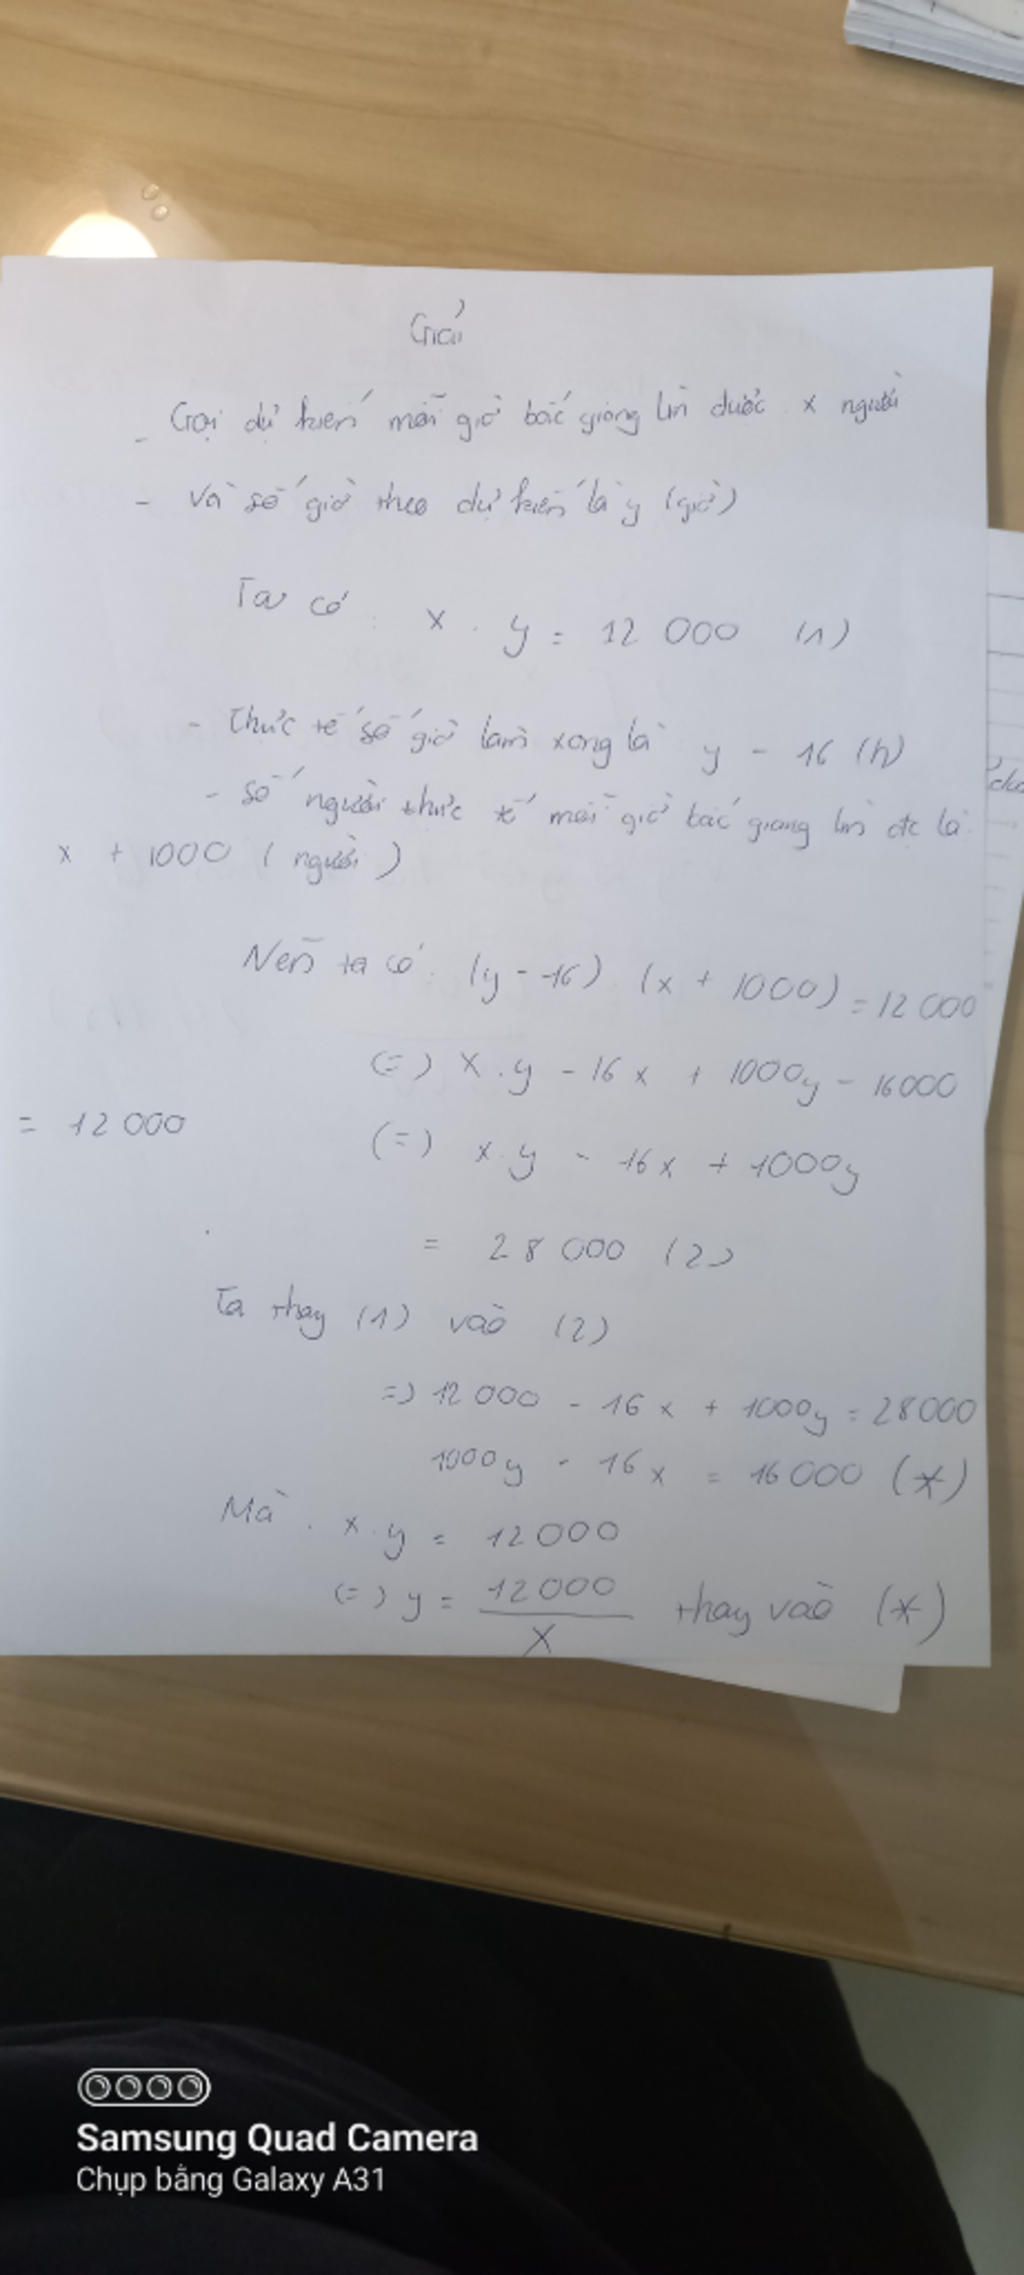 Giải
- Gọi dự kiến mỗi giờ bắc giang làm được x người
- Và số giờ theo dự kiến là y (giờ)
Ta có : x . y = 12 000 (1)
- Thực tế số giờ làm xong là y - 16 (h)
- số người thực tế mỗi giờ bắc giang làm đc là
x + 1000 ( người )
Nên ta có : (y - 16) (x + 1000) = 12 000
(=) x . y - 16 x + 1000y - 16000
= 12 000
(=) x . y - 16 x + 1000y
= 28 000 (2)
Ta thay (1) vào (2)
=) 12 000 - 16 x + 1000y = 28000
1000 y - 16 x = 16 000 (*)
Mà . x . y = 12000
(=) y = 12 000 / x thay vào (*)
Samsung Quad Camera
Chụp bằng Galaxy A31